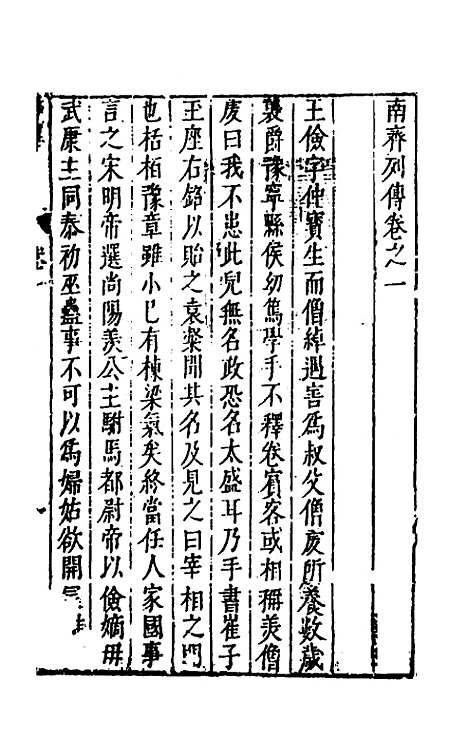 南齊列傳卷之一
王儉字仲寶生而僧綽遇害爲叔父僧虔所養數歲
襲爵豫寧縣侯幼篤學手不釋卷賓客或相稱羨僧
虔曰我不患此兒無名政恐名太盛耳乃手書崔子
玉座右銘以貽之袁粲聞其名及見之曰宰相之門
也栝柏豫章雖小已有棟梁氣矣終當任人家國事
言之宋明帝選尚陽羨公主駙馬都尉帝以儉嫡母
武康主同泰初巫蠱事不可以爲婦姑欲開
卷一